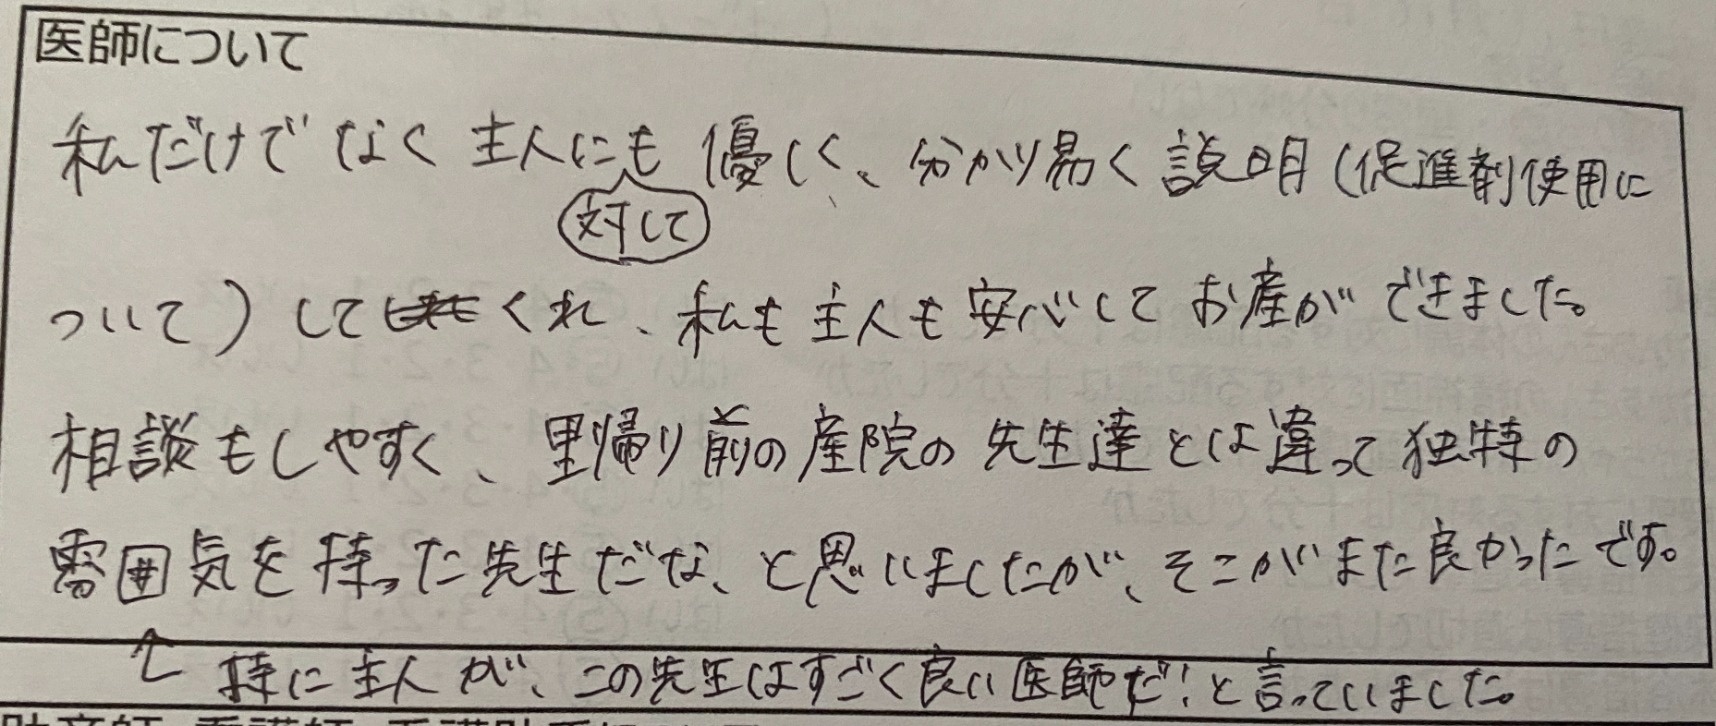 医師について
私だけでなく主人にも優しく、分かり易く説明(促進剤使用に
対して
ついて)してくれ、私も主人も安心してお産ができました。
相談もしやすく、里帰り前の産院の先生達とは違って独特の
雰囲気を持った先生だな、と思いましたが、そこがまた良かったです。
特に主人が、この先生はすごく良い医師だ!と言っていました。